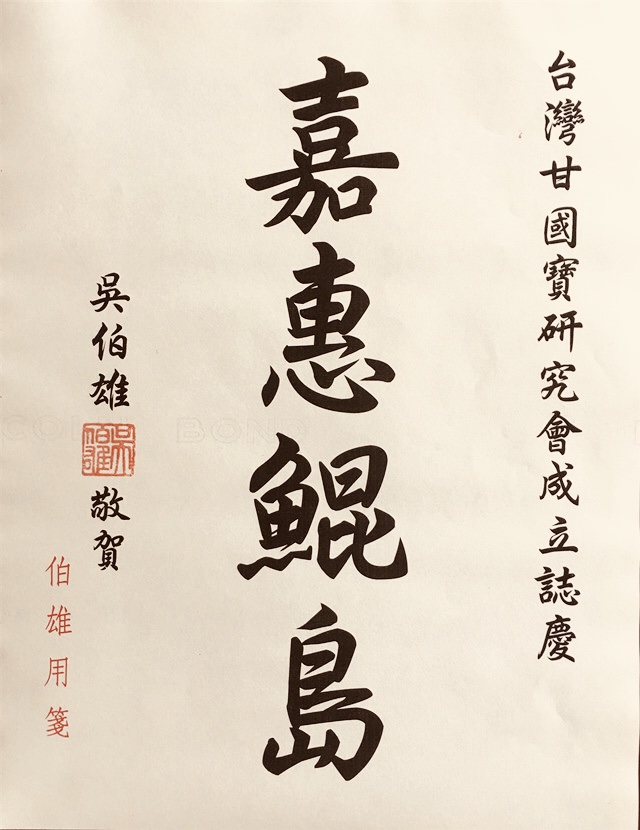 台灣甘國寶研究會成立誌慶
嘉惠鯤島
吳伯雄
吳伯雄
敬賀
伯雄用箋
BOND